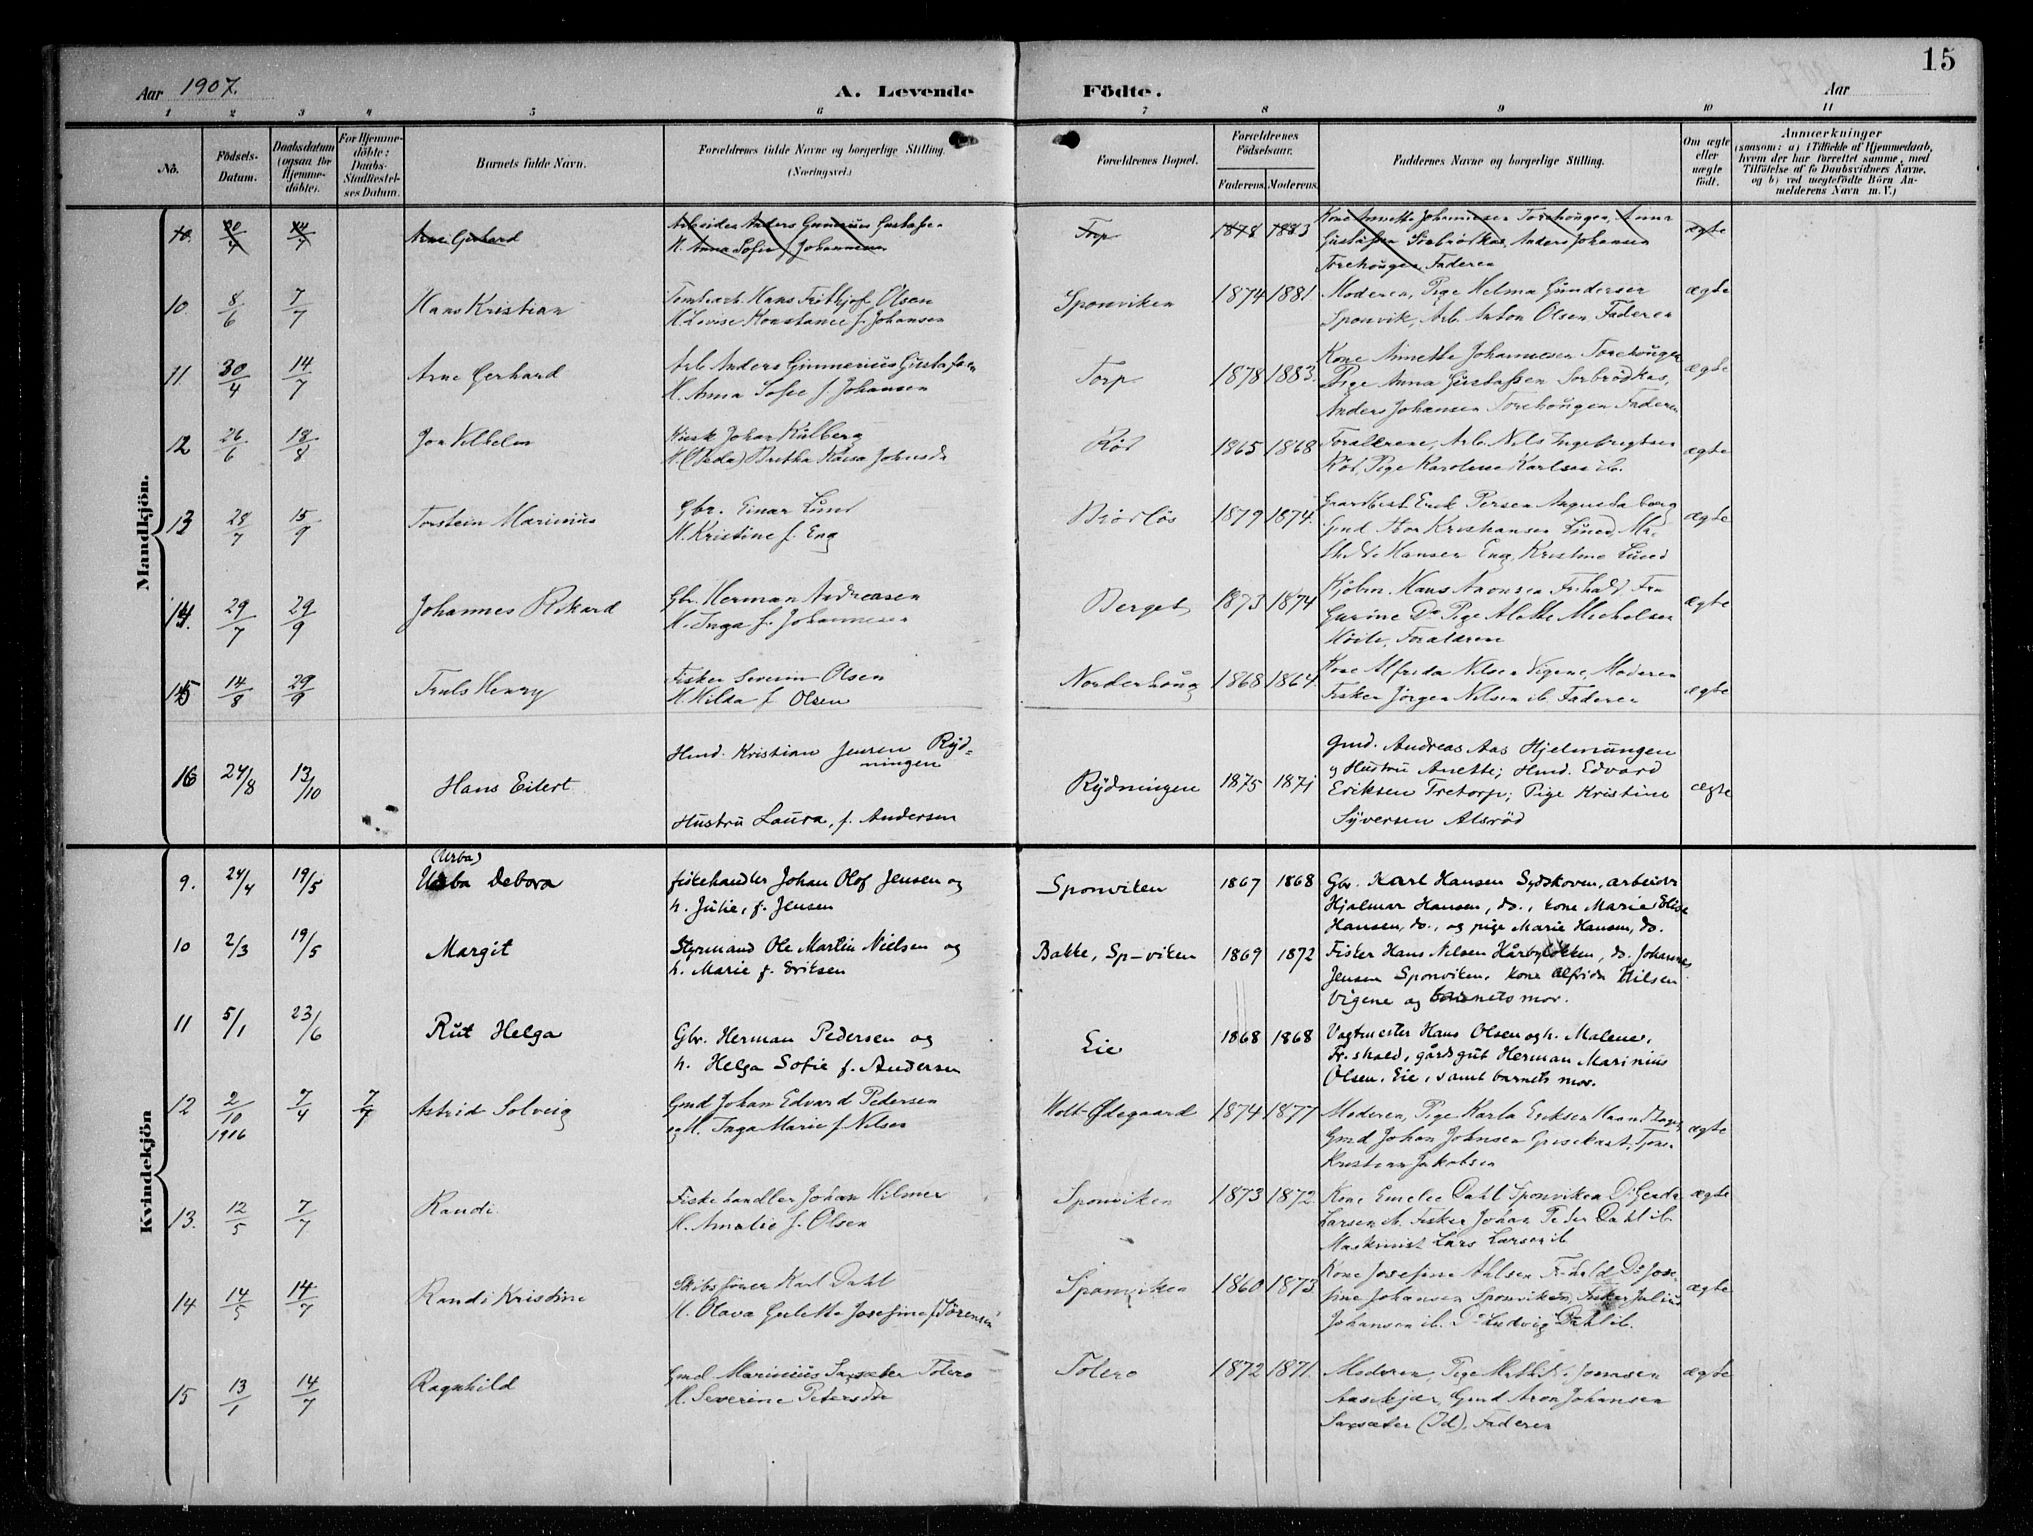 15
Aar 1907.
A. Levende
Födte.
Aar
1 2 3 4 5 6 7 8 9 10 11
No.
Födsels-
Datum.
Daabsdatum
(ogsaa for
Hjemme-
döbte).
For Hjemme-
döbte:
Daabs-
Stadfæstel-
ses Datum.
Barnets fulde Navn.
Forældrenes fulde Navne og borgerlige Stilling.
(Næringsvei.)
Forældrenes Bopæl.
Forældrenes
Födselsaar.
Faderens. Moderens.
Faddernes Navne og borgerlige Stilling.
Om ægte
eller
uægte
født.
Anmærkninger
(saasom: a) i Tilfælde af Hjemmedaab,
hvem der har forrettet samme, med
Tilföielse af to Daabsvidners Navne.
og b) ved uægtefödte Börn An-
melderens Navn m. V.)
Mandkjön.
10. 30/4 14/7 Arne Gerhard
Arbeider Anders Gunnerius Gustafsen
H. Anna Sofie f. Johannesen
Torp 1878 1883
Kone Annette Johannesen Torehougen, Anna
Gustafsen Sörbrödkas, Anders Johansen
Torehougen, Faderen
ægte
10. 8/6 7/7 Hans Kristian
Tomtearb. Hans Frithjof Olsen
H. Lovise Konstance f. Johansen
Sponviken 1874 1881.
Moderen, Pige Helma Gundersen
Sponvik, Arb. Anton Olsen Faderen
ægte
11. 30/4 14/7 Arne Gerhard
Arb Anders Gunnerius Gustafsen
H. Anna Sofie f Johansen
Torp 1878 1883.
Kone Annette Johannesen Torehougen
Pige Anna Gustafsen Sorbrödkas,
Anders Johansen Torehougen Faderen
ægte
12 26/6 18/8 Jon Vilhelm
Kusk Johan Kulberg
H (Beda) Britha Kaisa Johnsdr
Röd 1865 1868
Forældrene, Arb. Nils Ingebrigtsen
Röd, Pige Karoline Karlsen ib.
ægte
13 28/7 15/9 Torstein Marinius
Gbr. Einar Lund
H. Kristine f. Eng
Brödlös 1879 1874.
Erik Persen Augustaborg
Gmd Thor Kristiansen Lund, Ma-
thilde Hansen Eng, Kristine Lund
ægte
14. 29/7 29/9 Johannes Rikard
Gbr. Herman Andreasen
H. Inga f. Johannesen
Berget 1873 1874
Kjöbm. Hans Aronsen Frhald Fru
Gurine Do Pige Alette Michelsen
Holte, Forældrene
ægte
15 14/8 29/9 Truls Henry
Fisker Severin Olsen
H. Hilda f Olsen
Norderhoug 1868 1864.
Kone Alfrida Nilsen Vigene, Moderen
Fisker Jörgen Nilsen ib. Faderen
ægte
16 24/8 13/10 Hans Eilert
Hmd. Kristian Jensen Ryd-
ningen
Hustru Laura, f. Andersen
Rydningen 1875 1871
Gmd. Andreas Aas Hjelmungen
og Hustru Anette; Hmd. Edvard
Eriksen Tretorp; Pige Kristine
Syversen Alsröd
ægte
Kvindekjön
9. 24/4 19/5 (Urba)
Urba Debora
fiskehandler Johan Olof Jensen og
h. Julie, f. Jensen
Sponviken 1867 1868
Gbr. Karl Hansen Sydskoven, arbeider
Hjalmar Hansen, do., kone Marie Elise
Hansen, do., og pige Marie Hansen, do.
10 2/3 19/5 Margit
Styrmand Ole Martin Nielsen og
h. Marie f. Eriksen
Bakke, Sp-viken 1869 1872
Fisker Hans Nilsen Hårbylökken, do. Johannes
Jensen Sponviken, kone Alfrida Nilsen
Vigene og barnets mor.
11 5/1 23/6 Rut Helga
Gbr. Herman Pedersen og
h. Helga Sofie f. Andersen
Eie 1868 1868
Vagtmester Hans Olsen og h. Malene,
Fr.shald, gårdsgut Herman Marinius
Olsen, Eie, samt barnets mor.
12 2/10 1916 7/4 7/7 Astrid Solveig
Gmd Johan Edvard Pedersen
og H. Inga Marie f Nilsen
Holt-Ødegaard 1874 1877
Moderen, Pige Karla Eriksen
Gmd Johan Johnsen Grisekast, Tjener
Kristian Jakobsen
ægte
13. 12/5 7/7 Randi
Fiskehandler Johan Hilmer
H. Amalie f. Olsen
Sponviken 1873 1872
Kone Emelie Dahl Sponviken Do Gerda
Larsen ib. Fisker Johan Peder Dahl ib.
Maskinist Lars Larsen ib
ægte
14 14/5 14/7 Randi Kristine
Skibsförer Karl Dahl
H. Olava Gulette Josefine f Sörensen
Sponviken 1860 1873.
Kone Josefine Frhald Do Jose-
fine Johansen Sponviken, Fisker Julius
Johansen ib. Do Ludvig Dahl ib.
ægte
15 13/1 14/7 Ragnhild
Gmd Marinius Saxsæter Tolero
H. Severine Petersdr
Tolero 1872 1871.
Moderen, Pige Jonsen
Aasekjær, Gmd Aron Johansen
Saxsæter (Id), Faderen
ægte